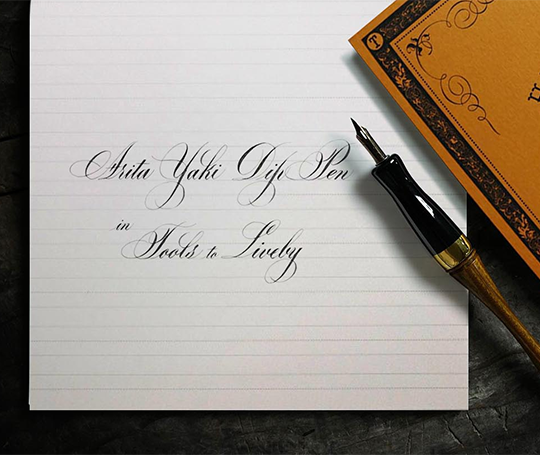 Arita Yaki Dip Pen
in Tools to Liveby
T